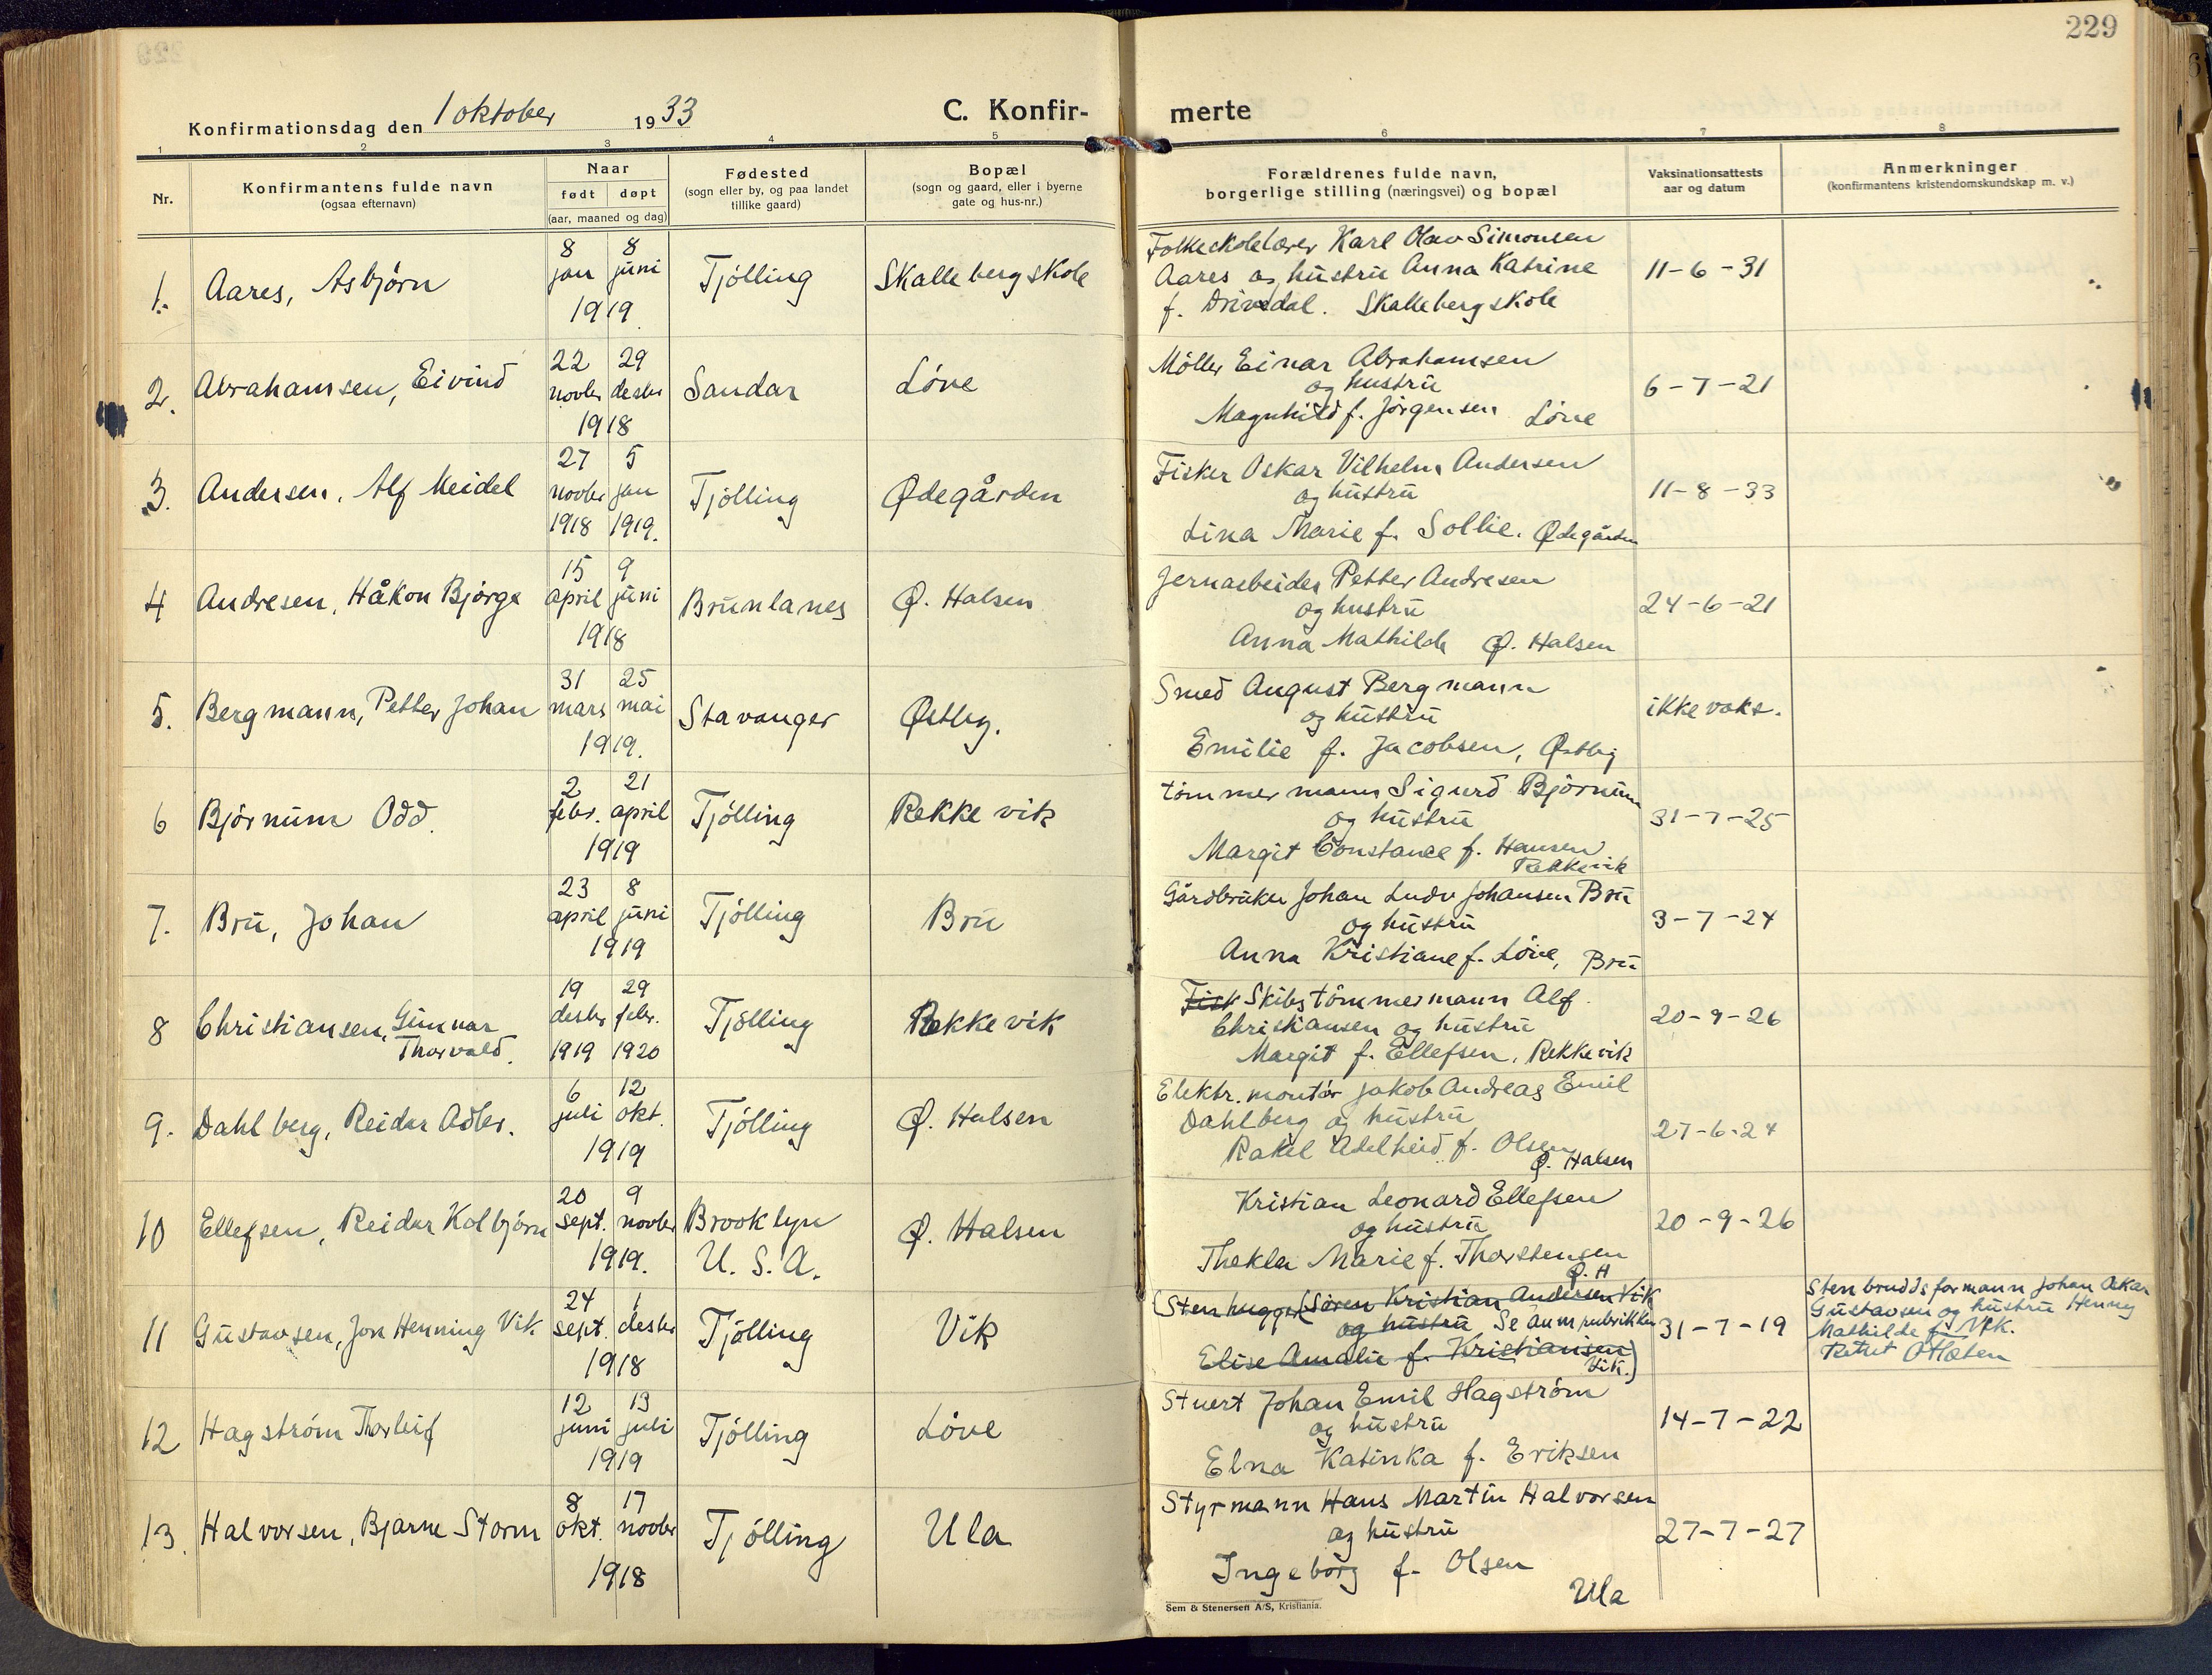 229
Konfirmationsdag den 1 oktober 1933
C. Konfirmerte
1 2 3 4 5 6 7 8
Nr.
Konfirmantens fulde navn
(ogsaa efternavn)
Naar
født døpt
(aar, maaned og dag)
Fødested
(sogn eller by, og paa landet
tillike gaard)
Bopæl
(sogn og gaard, eller i byerne
gate og hus-nr.)
Forældrenes fulde navn,
borgerlige stilling (næringsvei) og bopæl
Vaksinationsattests
aar og datum
Anmerkninger
(konfirmantens kristendomskundskap m. v.)
1. Aares, Asbjørn
8 jan 8 juni
1919
Tjølling
Skalleberg skole
Folkeskolelærer Karl Olav Simonsen
Aares og hustru Anna Katrine
f. Drivdal. Skalleberg skole
11-6-31
2. Abrahamsen, Eivind
22 novbr 29 desbr
1918
Sandar
Løve
Møller Einar Abrahamsen
og hustru
Magnhild f. Jørgensen Løve
6-7-21
3. Andersen, Alf Meidel
27 novbr 5 jan
1918 1919.
Tjølling
Ødegården
Fisker Oskar Vilhelm Andersen
og hustru
Lina Marie f. Sollie. Ødegården
11-8-33
4 Andresen, Håkon Bjørge
15 april 9 juni
1918
Brunlanes
Ø. Halsen
Jernarbeider Petter Andresen
og hustru
Anna Mathilde Ø. Halsen
24-6-21
5. Bergmann, Petter Johan
31 mars 25 mai
1919.
Stavanger
Østby.
Smed August Bergmann
og hustru
Emilie f. Jacobsen, Østby
ikke vaks.
6 Bjørnum Odd.
2 febr. 21 april
1919
Tjølling
Rekkevik
tømmermann Sigurd Bjørnum
og hustru
Margit Constance f. Hansen
Rekkevik
31-7-25
7. Bru, Johan
23 april 8 juni
1919
Tjølling
Bru
Gårdbruker Johan Ludv Johansen Bru
og hustru
Anna Kristiane f. Løve, Bru
3-7-24
8 Christiansen, Gunnar
Thorvald.
19 desbr 29 febr.
1919 1920
Tjølling
Rekkevik
Fisk Skibstømmermann Alf.
Christiansen og hustru
Margit f. Ellefsen, Rekkevik
20-9-26
9. Dahlberg, Reidar Adler.
6 juli 12 okt.
1919
Tjølling
Ø. Halsen
Elektr. montør Jakob Andreas Emil
Dahlberg og hustru
Rakel Adelheid f. Olsen
Ø. Halsen
27-6-24
10 Ellefsen, Reidar Kolbjørn
20 sept. 9 novbr
1919.
Brooklyn
U. S. A.
Ø. Halsen
Kristian Leonard Ellefsen
og hustru
Thekla Marie f. Thorstensen
Ø. H
20-9-26
11 Gustavsen, Jon Henning Vik
24 sept. 1 desbr
1918
Tjølling
Vik
(Stenhugger (Søren Kristian Andersen Vik
og hustru Se anm rubrikken
Elise Amalie f. Kristiansen
Vik.)
31-7-19
Stenbruddsformann Johan Oskar
Gustavsen og hustru Henny
Mathilde f. Vik.
Rettet
12 Hagstrøm Thorleif
12 juni 13 juli
1919
Tjølling
Løve
Stuert Johan Emil Hagstrøm
og hustru
Elna Katinka f. Eriksen
14-7-22
13. Halvorsen, Bjarne Storm
8 okt. 17 novbr
1918
Tjølling
Ula
Styrmann Hans Martin Halvorsen
og hustru
Ingeborg f. Olsen
Ula
27-7-27
Sem & Stenersen A/S, Kristiania.